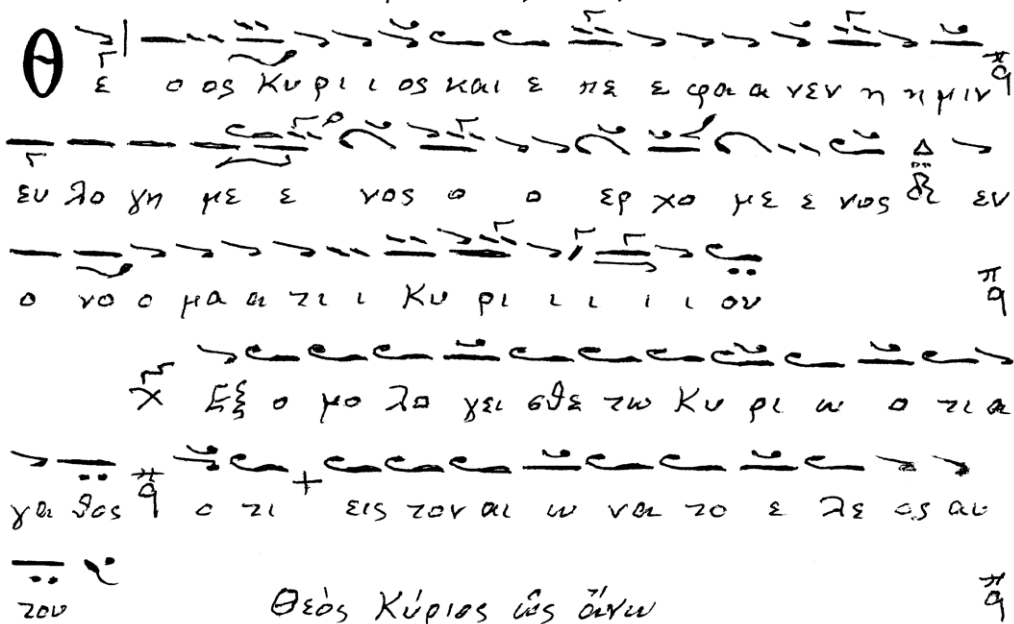 Θ ε ο ος Κυ ρι ι ος και ε πε ε φα α νεν η η μιν
ευ λο γη με ε νος ο ο ερ χο με ε νος εν
ο νο ο μα α τι ι Κυ ρι ι ι ι ι ου
Εξ ο μο λο γει σθε τω Κυ ρι ω ο τι α
γα θος ο τι εις τον αι ω να το ε λε ος αυ
του Θεὸς Κύριος ὡς ἄνω